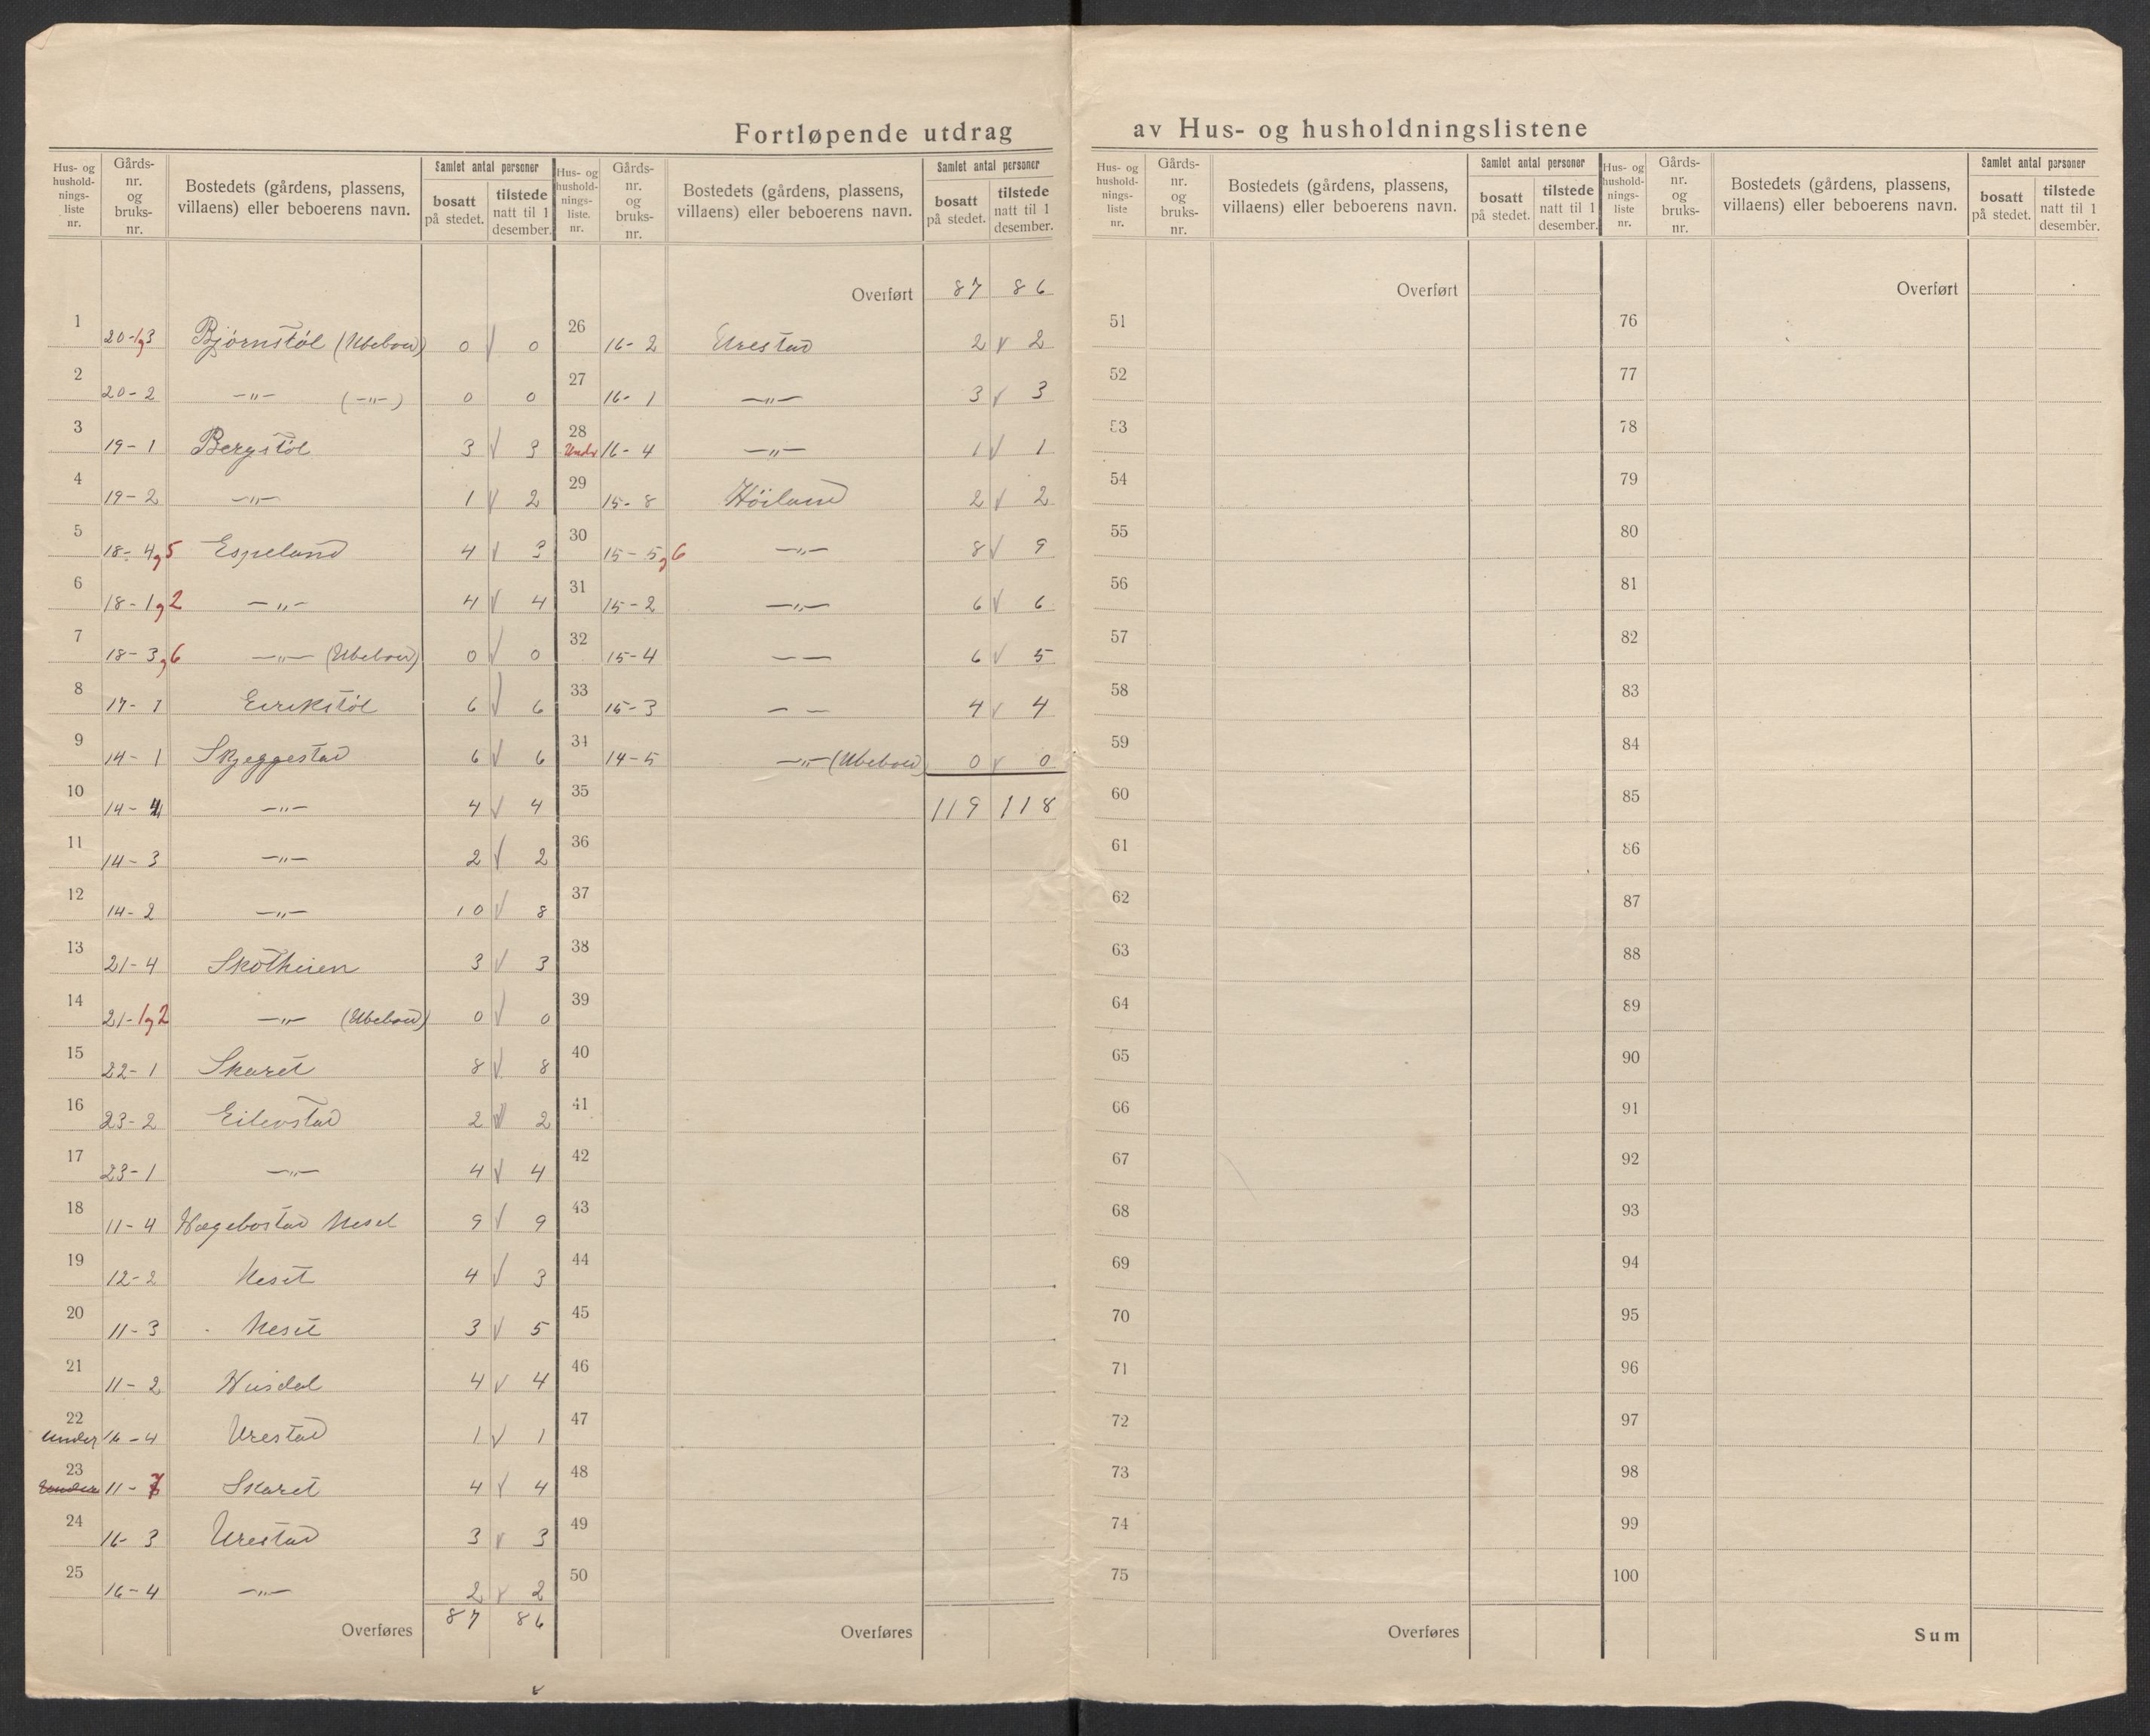 Fortløpende utdrag av Hus- og husholdningslistene
Hus- og hushold-nings-liste nr. | Gårds-nr. og bruks-nr. | Bostedets (gårdens, plassens, villaens) eller beboerens navn. | Samlet antal personer | bosatt på stedet. | tilstede natt til 1 desember.
1 20-1 og 3 Bjørnstøl (Ubeboed) 0 √ 0
2 20-2 —"— (—"—) 0 0
3 19-1 Bergstøl 3 √ 3
4 19-2 —"— 1 √ 2
5 18-4 og 5 Espeland 4 √ 3
6 18-1 og 2 —"— 4 √ 4
7 18-3 og 6 —"— (Ubeboed) 0 √ 0
8 17-1 Eirikstøl 6 √ 6
9 14-1 Skjeggestad 6 √ 6
10 14-4 —"— 4 √ 4
11 14-3 —"— 2 √ 2
12 14-2 —"— 10 √ 8
13 21-4 Skotheien 3 √ 3
14 21-1 og 2 —"— (Ubeboed) 0 √ 0
15 22-1 Skaret 8 √ 8
16 23-2 Eilevstad 2 √ 2
17 23-1 —"— 4 √ 4
18 11-4 Hægebostad Neset 9 √ 9
19 12-2 Neset 4 √ 3
20 11-3 Neset 3 √ 5
21 11-2 4 √ 4
22 under 16-4 Urestad 1 √ 1
23 11-7 Skaret 4 √ 4
24 16-3 Urestad 3 √ 3
25 16-4 —"— 2 √ 2
Overføres 87 86
Hus- og hushold-nings-liste. nr. | Gårds-nr. og bruks-nr. | Bostedets (gårdens, plassens, villaens) eller beboerens navn. | Samlet antal personer | bosatt på stedet. | tilstede natt til 1 desember.
Overført 87 86
26 16-2 Urestad 2 √ 2
27 16-1 —"— 3 √ 3
28 Under 16-4 —"— 1 √ 1
29 15-8 Höiland 2 √ 2
30 15-5 og 6 —"— 8 √ 9
31 15-2 —"— 6 √ 6
32 15-4 — — 6 √ 5
33 15-3 — — 4 √ 4
34 14-5 —"— (Ubeboed) 0 √ 0
35 119 118
36
37
38
39
40
41
42
43
44
45
46
47
48
49
50
Overføres
Hus- og hushold-nings-liste nr. | Gårds-nr. og bruks-nr. | Bostedets (gårdens, plassens, villaens) eller beboerens navn. | Samlet antal personer | bosatt på stedet. | tilstede natt til 1 desember.
Overført
51
52
53
54
55
56
57
58
59
60
61
62
63
64
65
66
67
68
69
70
71
72
73
74
75
Overføres
Hus- og hushold-nings-liste nr. | Gårds-nr. og bruks-nr. | Bostedets (gårdens, plassens, villaens) eller beboerens navn. | Samlet antal personer | bosatt på stedet. | tilstede natt til 1 desember.
Overført
76
77
78
79
80
81
82
83
84
85
86
87
88
89
90
91
92
93
94
95
96
97
98
99
100
Sum